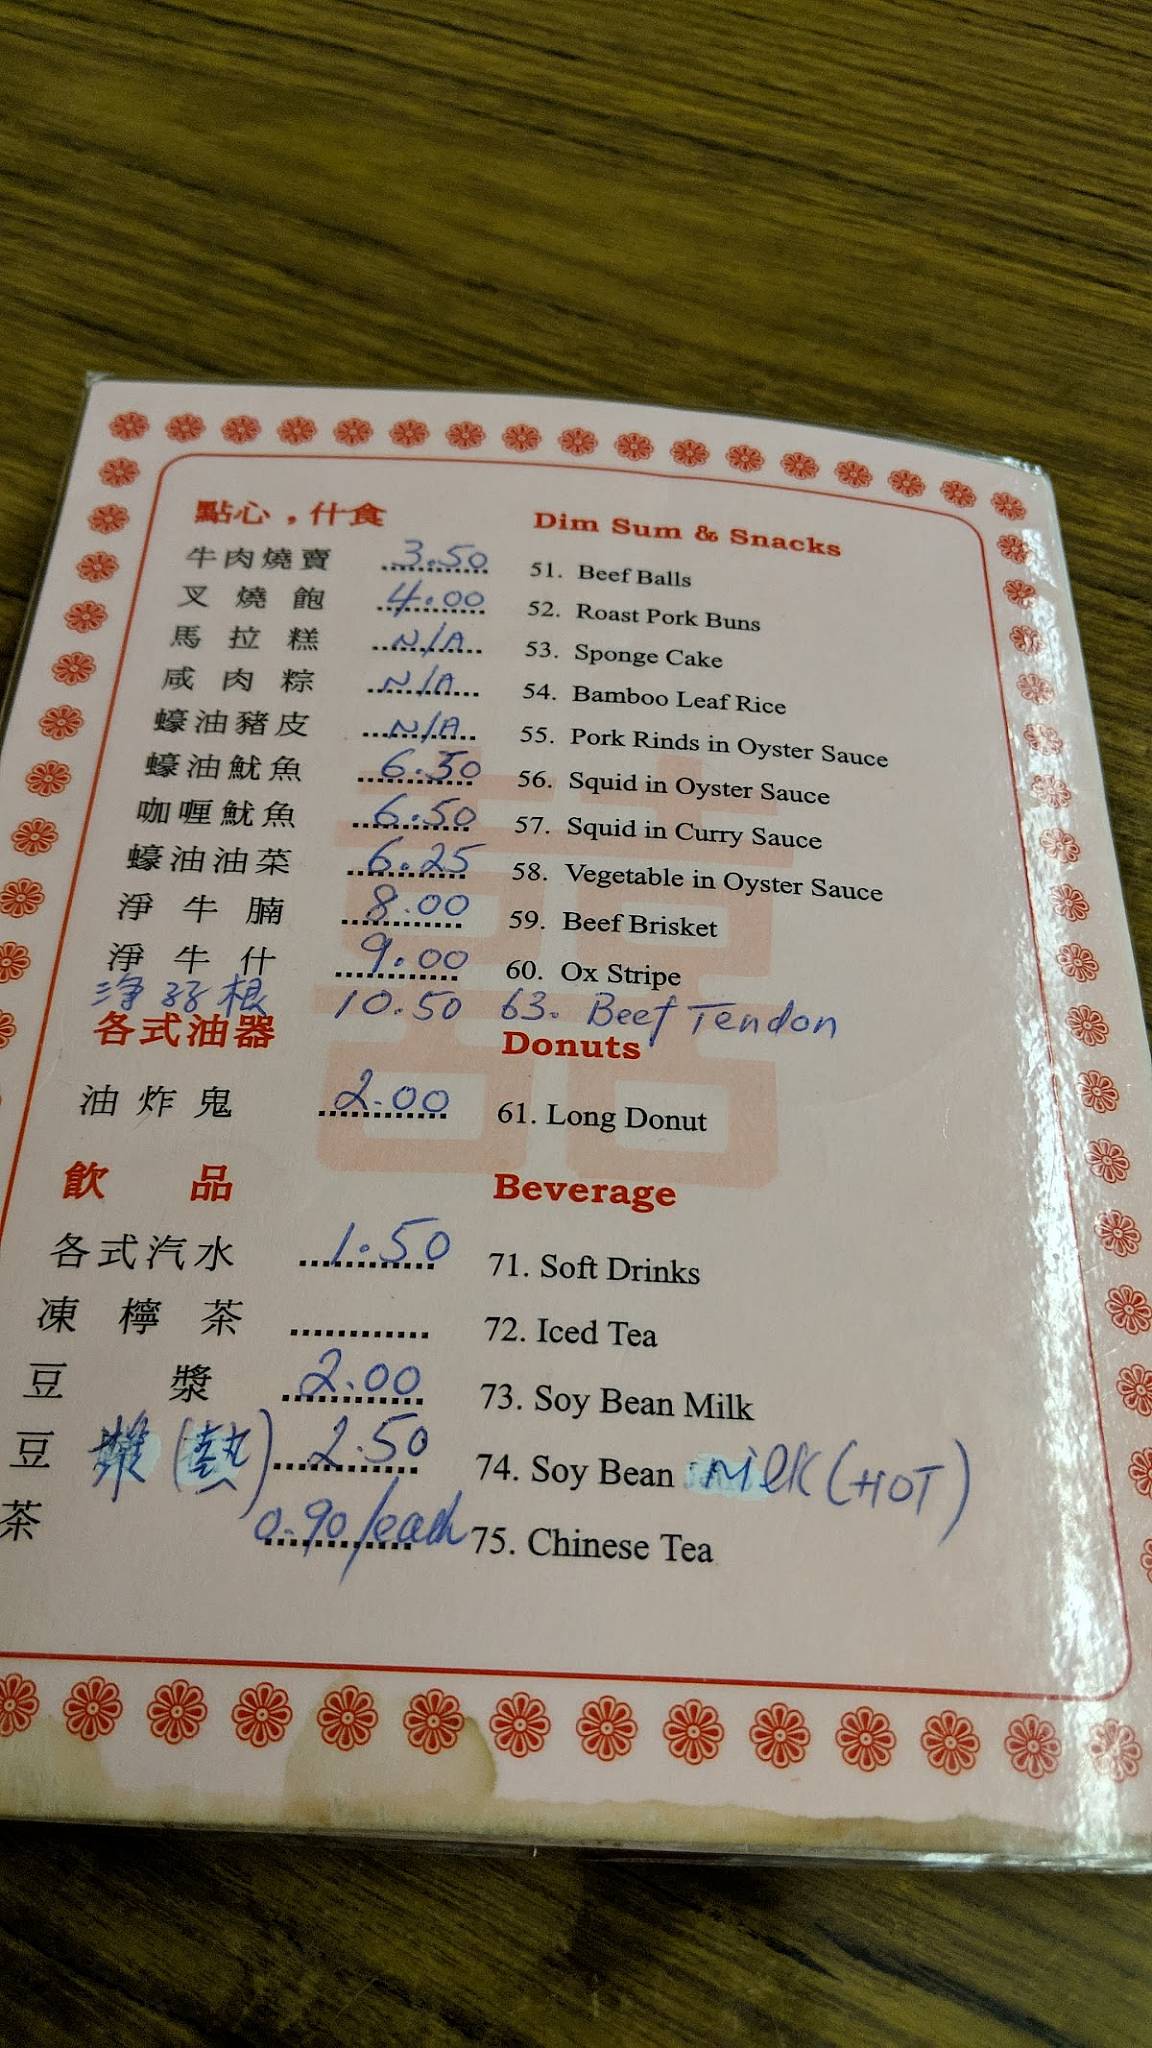 點心，什食 Dim Sum & Snacks
牛肉燒賣 3.50 51. Beef Balls
叉燒飽 4.00 52. Roast Pork Buns
馬拉糕 N/A 53. Sponge Cake
咸肉粽 N/A 54. Bamboo Leaf Rice
蠔油豬皮 N/A 55. Pork Rinds in Oyster Sauce
蠔油魷魚 6.50 56. Squid in Oyster Sauce
咖喱魷魚 6.50 57. Squid in Curry Sauce
蠔油油菜 6.25 58. Vegetable in Oyster Sauce
淨牛腩 8.00 59. Beef Brisket
淨牛什 9.00 60. Ox Stripe
淨 根 10.50 63. Beef Tendon
各式油器 Donuts
油炸鬼 2.00 61. Long Donut
飲品 Beverage
各式汽水 1.50 71. Soft Drinks
凍檸茶 72. Iced Tea
豆漿 2.00 73. Soy Bean Milk
豆漿(熱) 2.50 74. Soy Bean Milk (HOT)
茶 0.90/each 75. Chinese Tea